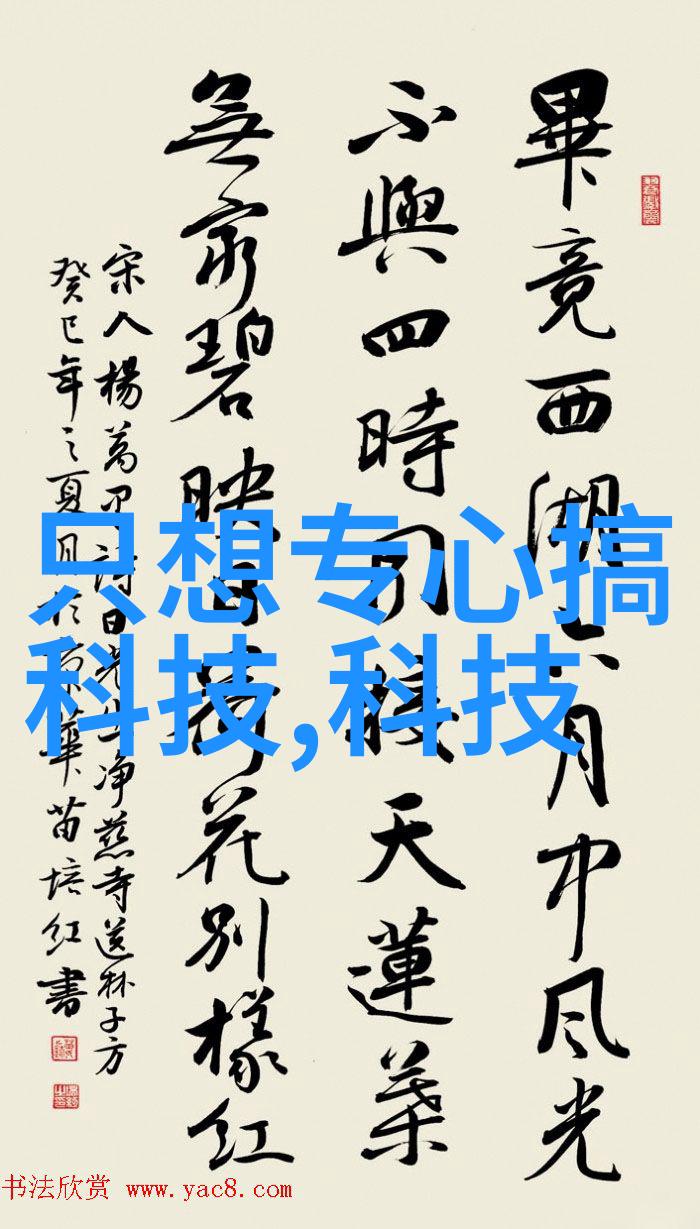 畢竟西湖六月中風光
不與四時同接天蓮葉
無窮碧映日荷花別樣紅
宋人楊萬里詩曉出净慈寺送林子方
癸巳年之夏月於京華苗培红書
只想专心搞
科技,科技
书法欣赏 www.yac8.com